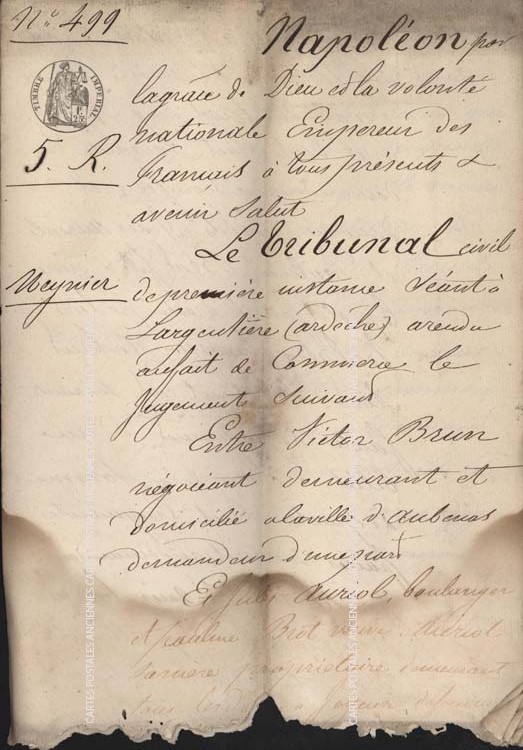 Nº 499
Napoléon par
TIMBRE IMPERIAL
la grace de Dieu et la volonté
nationale Empereur des
5. R.
Francais à tous présents &
avenir Salut
Le Tribunal civil
Meynier
de première instance séant à
Largentière (ardèche) a rendu
au fait de Commerce le
Jugement Suivant
Entre Victor Brun
négociant demeurant et
domicilié a la ville d'aubenas
demandeur d'une part
Et Jules auriol, boulanger
et pauline Brot veuve auriol
sa mère propriétaire demeurant
tous les deux a
CARTES POSTALES ANCIENNES